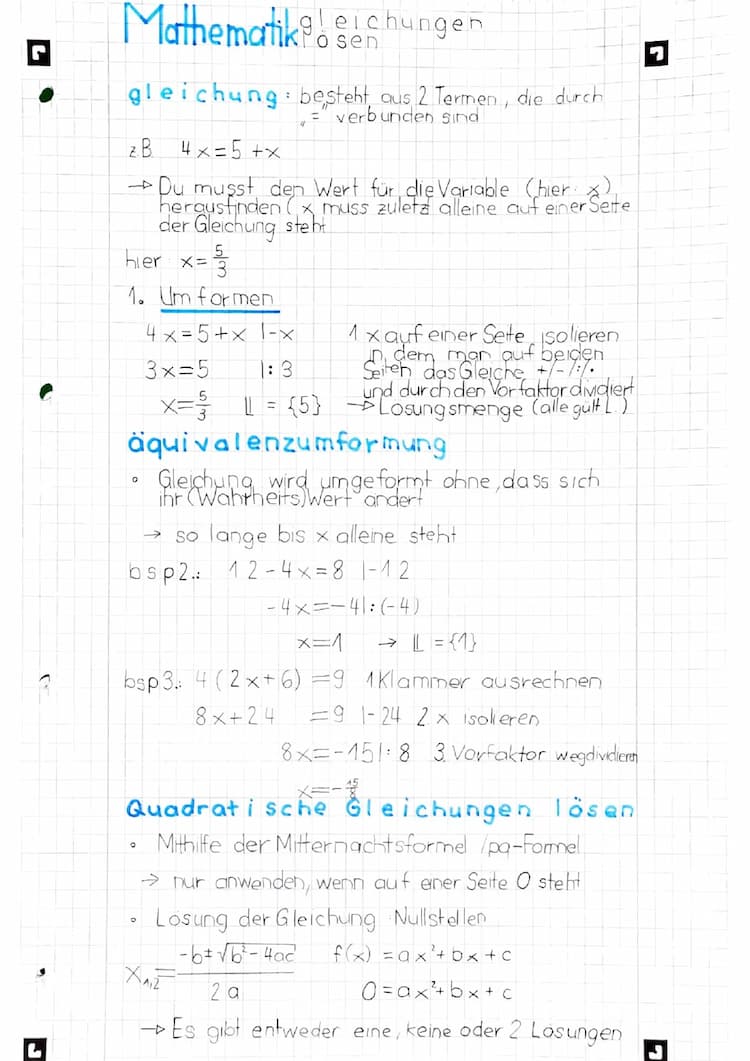 Mathematik gleichungen
lösen
gleichung: besteht aus 2 Termen, die durch
„=" verbunden sind
zB 4x=5+x
→ Du musst den Wert für die Variable (hier: x)
herausfinden ( x muss zuletzt alleine auf einer Seite
der Gleichung steht
hier x=5/3
1. Umformen
4x=5+x |-x 1 x auf einer Seite isolieren
in dem man auf beiden
3x=5 |:3 Seiten das Gleiche +/-/:/·
und durch den Vorfaktor dividiert
x=5/3 𝕃 = {5} → Lösungsmenge (alle gült L.)
äquivalenzumformung
• Gleichung wird umgeformt ohne, dass sich
ihr (Wahrheits)Wert ändert
→ so lange bis x alleine steht
bsp2.: 12-4x=8 |-12
-4x=-4|:(-4)
x=1 → 𝕃 ={1}
bsp3.: 4(2x+6)=9 1 Klammer ausrechnen
8x+24 =9 |-24 2 x isolieren
8x=-15|:8 3. Vorfaktor wegdividieren
x=-15/8
Quadratische Gleichungen lösen
• Mithilfe der Mitternachtsformel /pq-Formel
→ nur anwenden, wenn auf einer Seite 0 steht
• Lösung der Gleichung Nullstellen
x₁,₂= (-b±√(b²-4ac))/2a f(x)=ax²+bx+c
0=ax²+bx+c
→ Es gibt entweder eine, keine oder 2 Lösungen